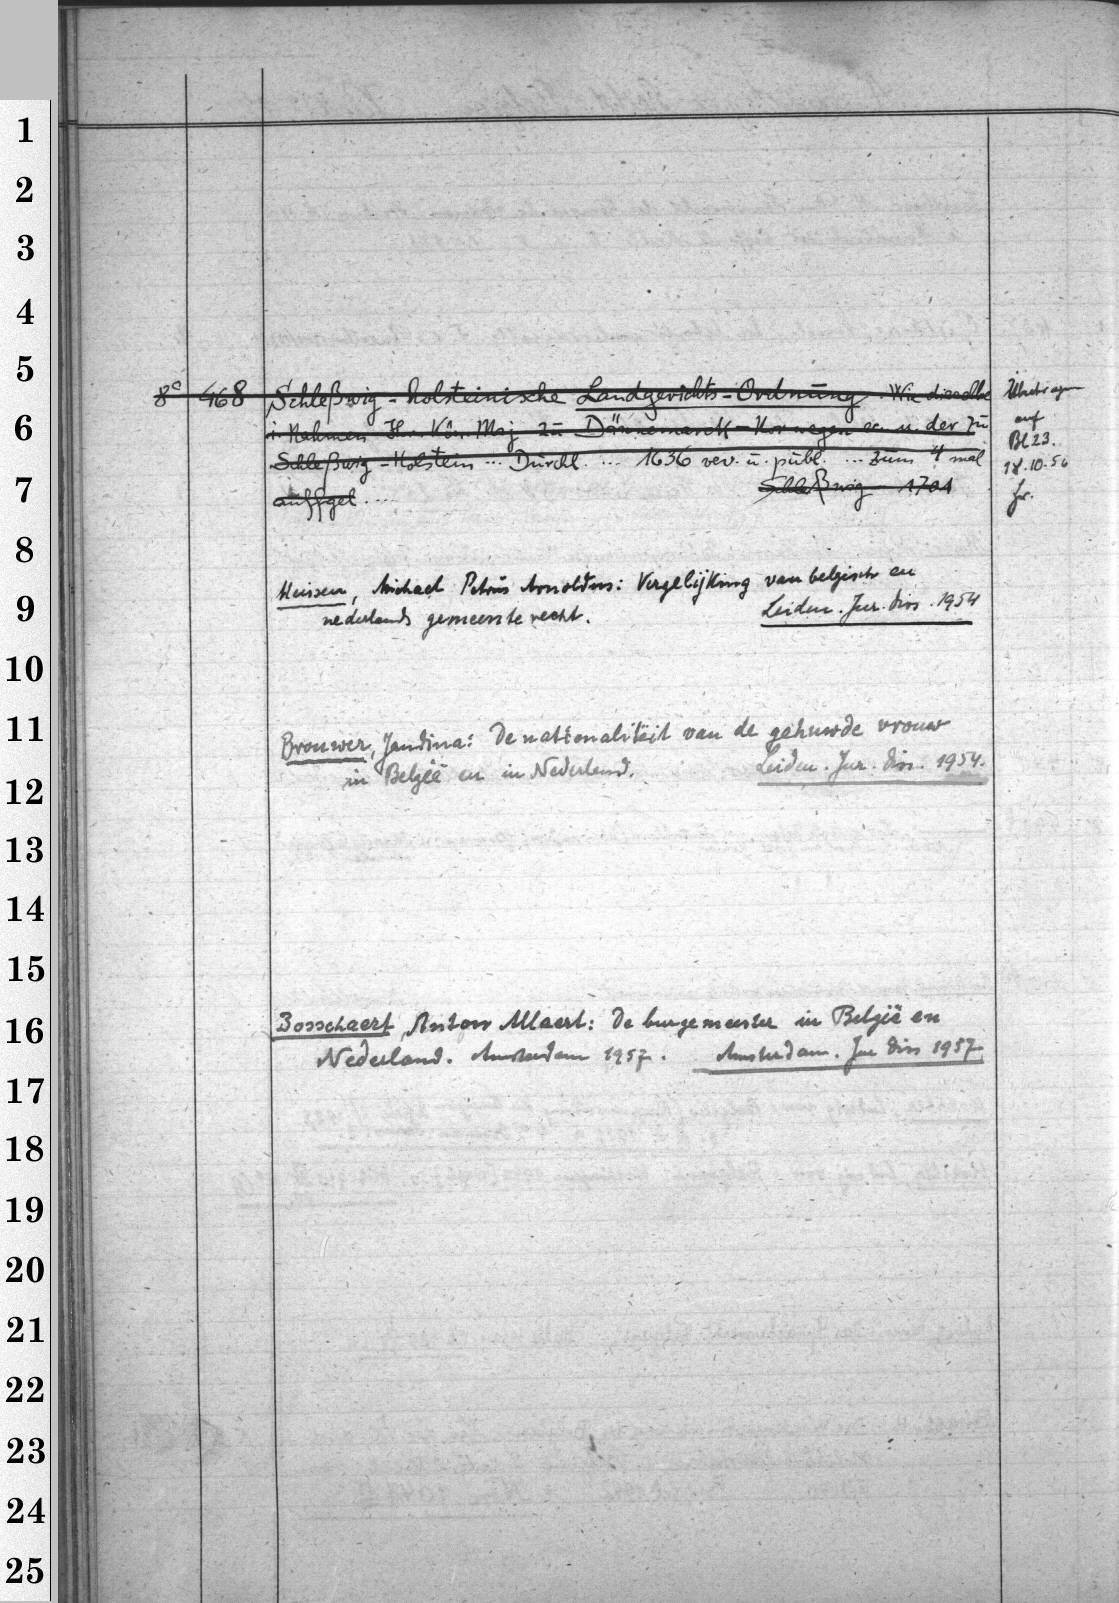 1
2
3
4
5
8° 468 Schleßwig-holsteinische Landgerichts-Ordnung. Wie dieselbe Übertragen
6
in Nahmen Ihr. Kön. Maj. zu Dännemarck-Norwegen u. der zu auf
Schleßwig-Holstein ... Durchl. ... 1636 rev. u. publ. ... zum 4 mal Bl 23.
18.10.56
7
auffgel. ... Schleßwig 1701
8
Huissen, Michael Petrus Arnoldus: Vergelijking van belgisch en
9
nederlands gemeenterecht. Leiden. Jur. diss. 1954
10
11
Brouwer, Jandina: De nationaliteit van de gehuwde vrouw
in België en in Nederland. Leiden. Jur. diss. 1954.
12
13
14
15
16
Bosschaert, Anton Allaert: De burgemeester in België en
Nederland. Amsterdam 1957. Amsterdam. Jur diss 1957
17
18
19
20
21
22
23
24
25